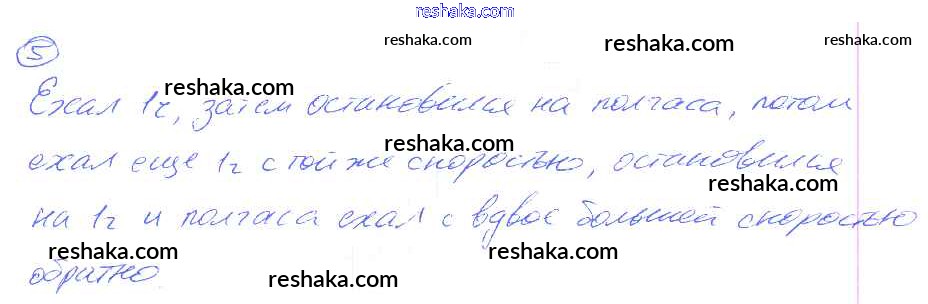 reshaka.com
5
reshaka.com
reshaka.com
reshaka.com
reshaka.com
Ехал 1ч, затем остановился на полчаса, потом
reshaka.com
ехал еще 1ч с той же скоростью, остановился
reshaka.com
на 1ч и полчаса ехал с вдвое большей скоростью
reshaka.com
reshaka.com
reshaka.com
обратно